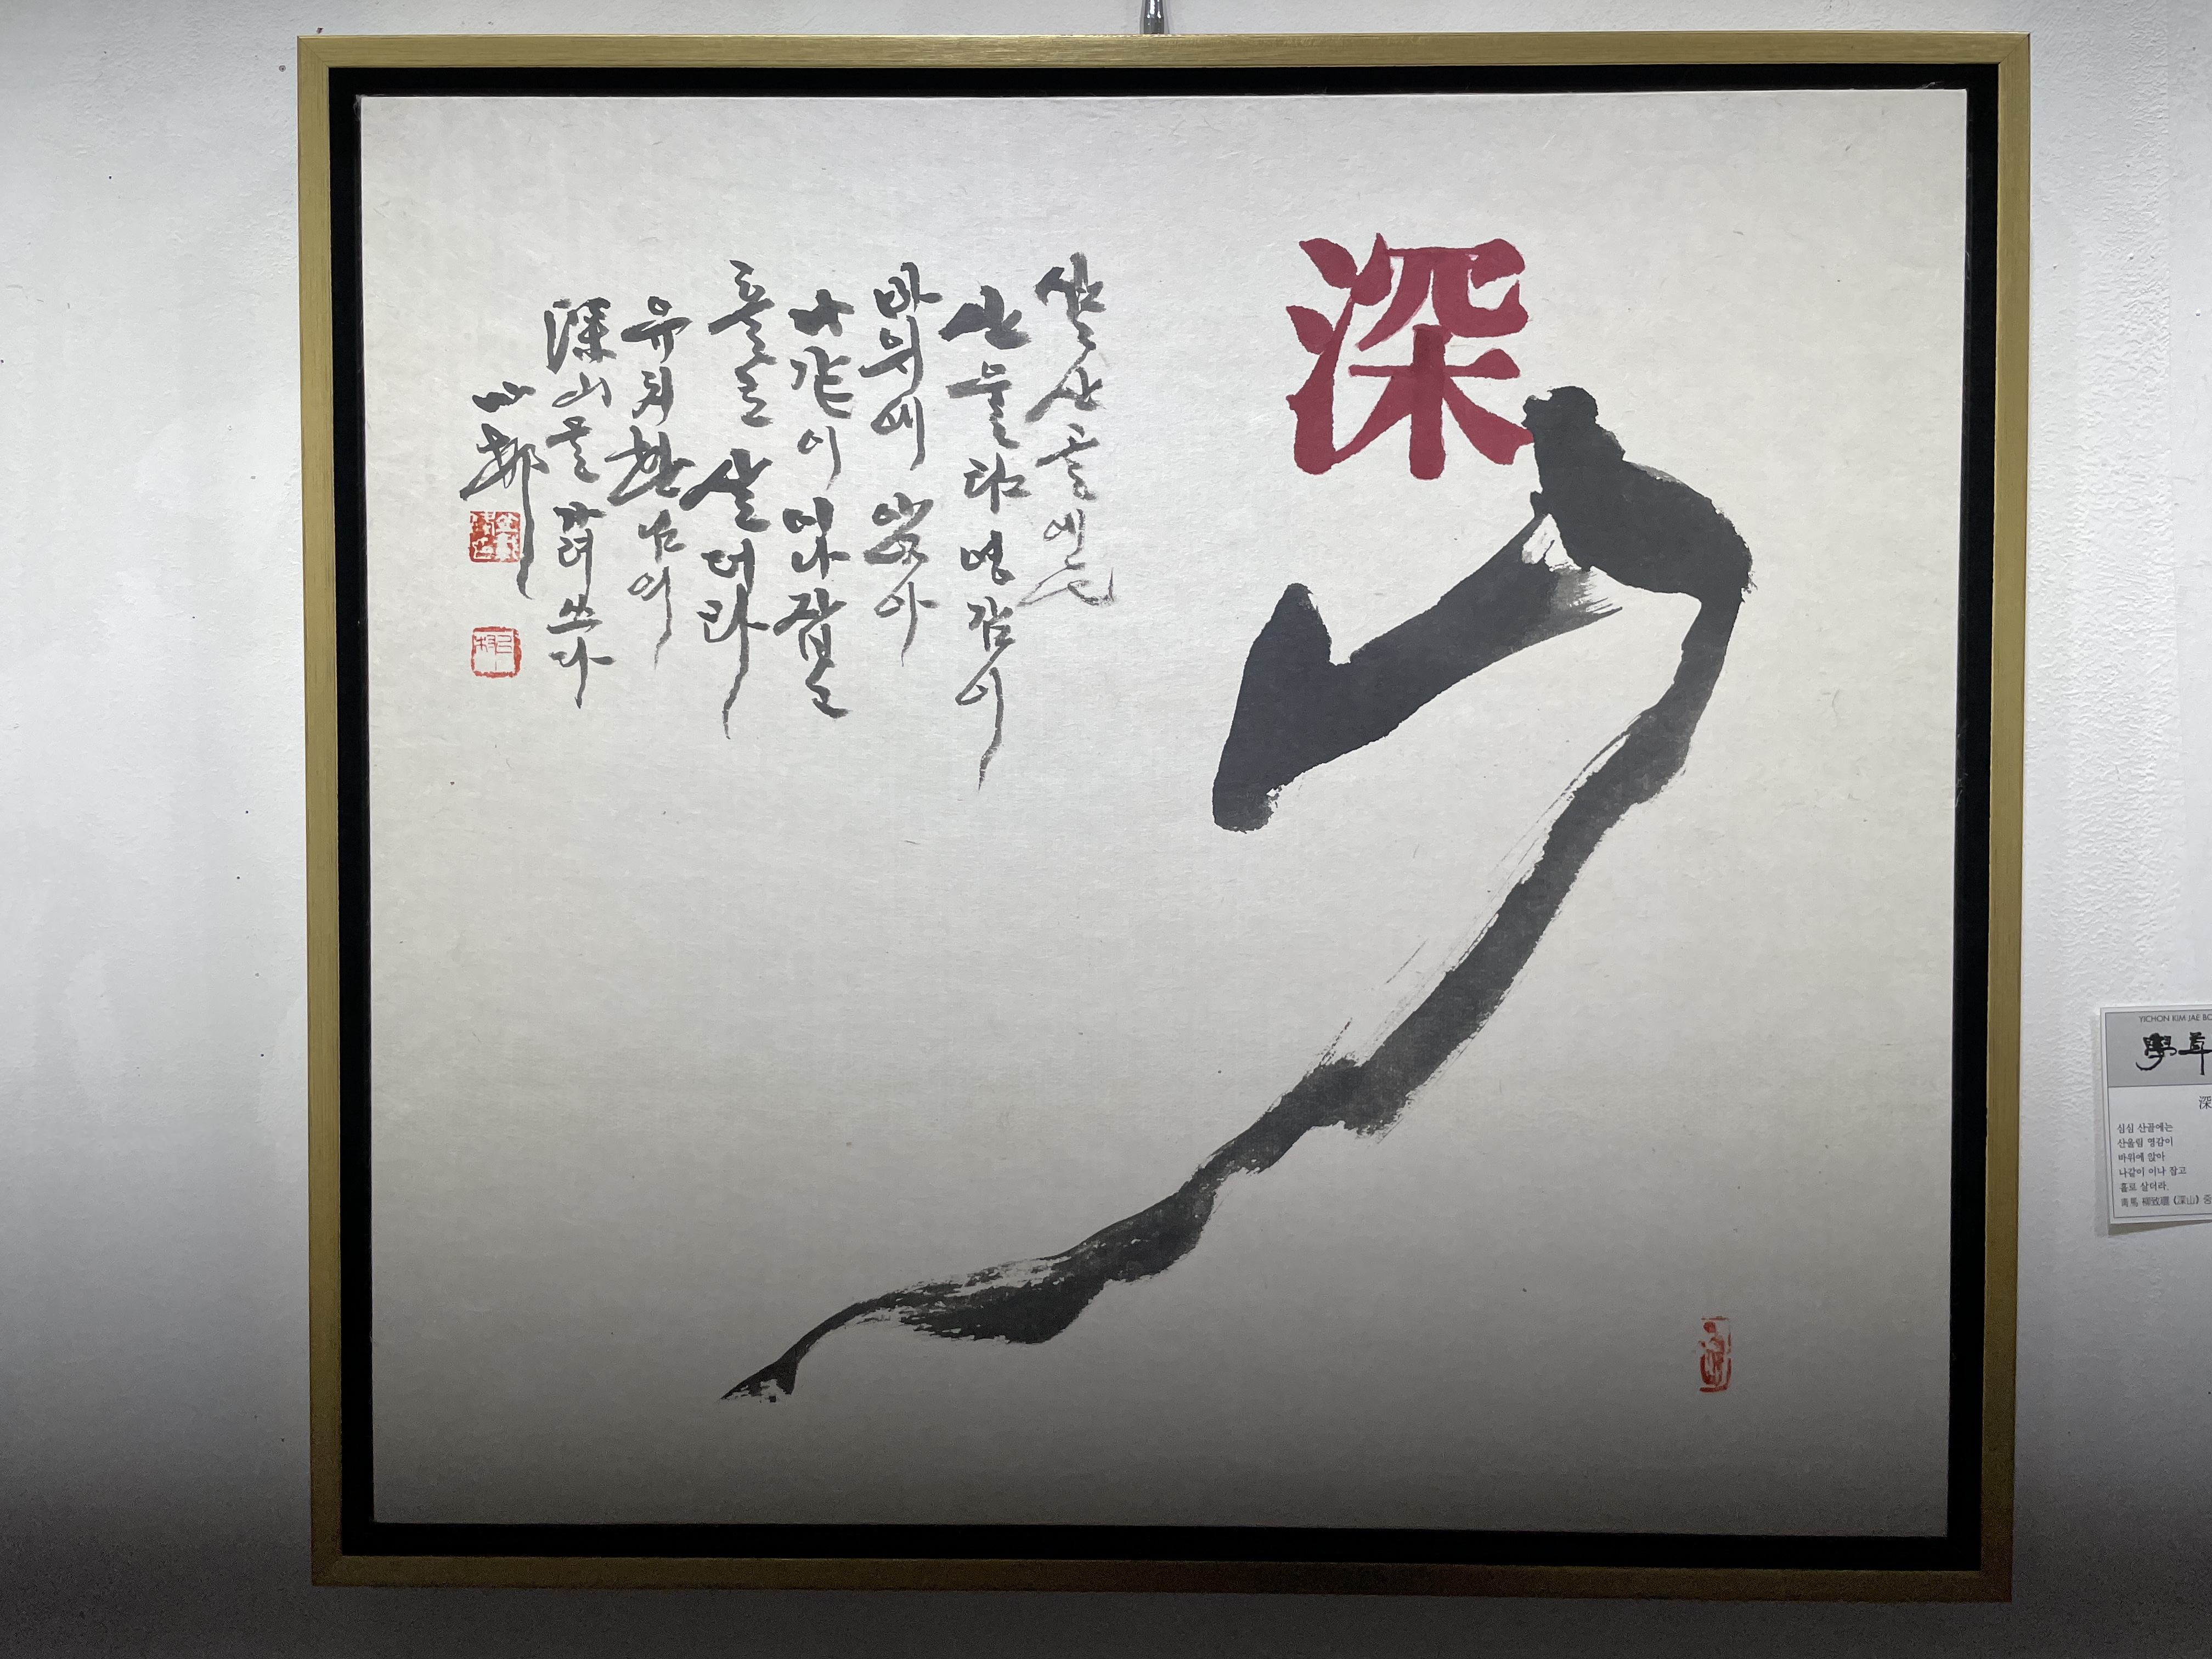 深
심심산골에는
산울림영감이
바위에 앉아
나같이 이나 잡고
홀로 살더라
유치환님의
深山을 가려 쓰다
邨
YICHON KIM JAE
深
심심 산골에는
산울림 영감이
바위에 앉아
나같이 이나 잡고
홀로 살더라.
靑馬 柳致環 《深山》 중